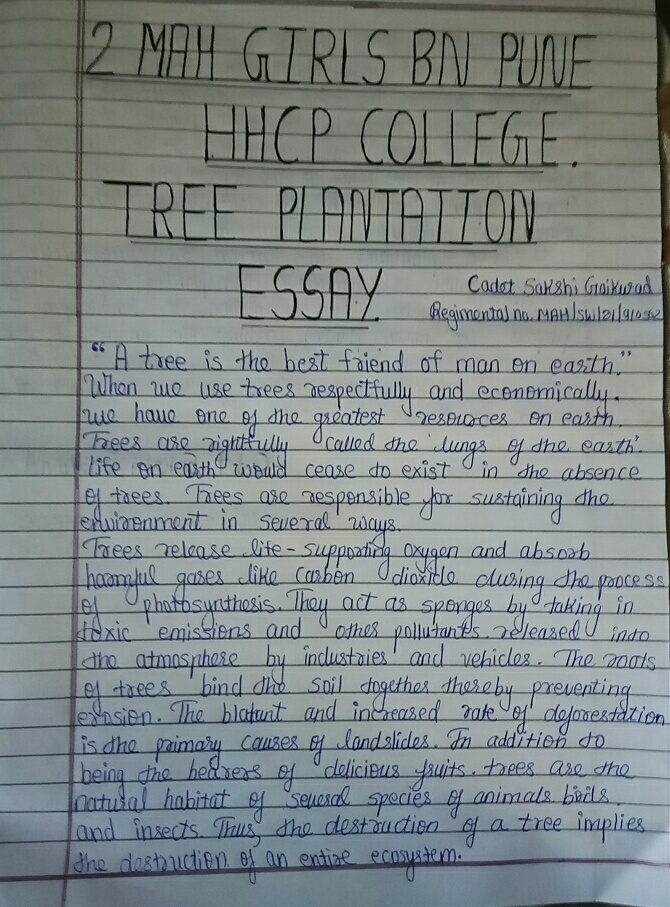 2 MAH GIRLS BN PUNE
HHCP COLLEGE.
TREE PLANTATION
ESSAY
Cadet Sakshi Gaikwad
Regimental no. MAH/SW/21/
"A tree is the best friend of man on earth."
When we use trees respectfully and economically.
we have one of the greatest resources on earth.
Trees are rightfully called the 'lungs of the earth'
life on earth would cease to exist in the absence
of trees. Trees are responsible for sustaining the
environment in several ways.
Trees release life-supporting oxygen and absorb
harmful gases like carbon dioxide during the process
of photosynthesis. They act as sponges by taking in
toxic emissions and other pollutants released into
the atmosphere by industries and vehicles. The roots
of trees bind the soil together thereby preventing
erosion. The blatant and increased rate of deforestation
is the primary causes of landslides. In addition to
being the bearers of delicious fruits. trees are the
natural habitat of several species of animals
and insects. Thus, the destruction of a tree implies
the destruction of an entire ecosystem.